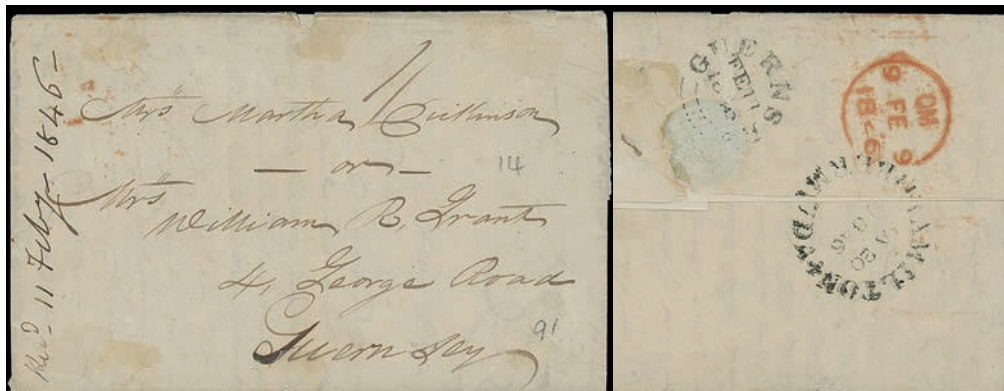 Recd 11 Feby 1846
1/
Mrs Martha Dickinson
— or —
Mrs
William R. Grant
4, George Road
Guernsey
14
91
GUERNS
FE 11
OM
9 FE 9
1846
HAMILTON
20